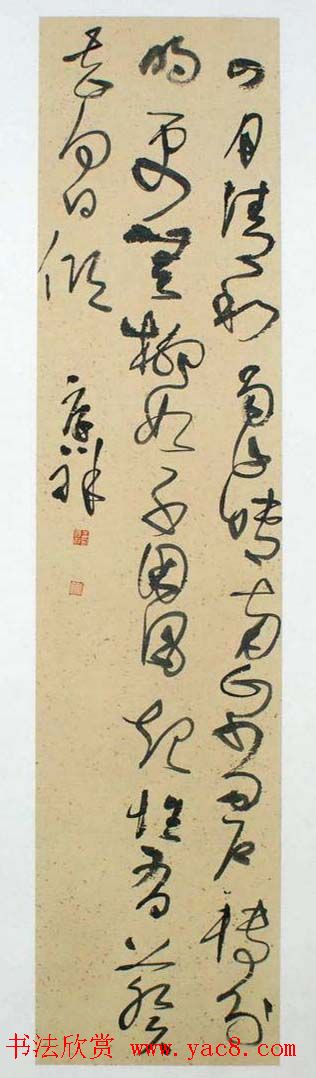 四月清和雨乍晴南山當户轉分
明更無柳絮因風起惟有葵
花向日傾
祥
书法欣赏 www.yac8.com